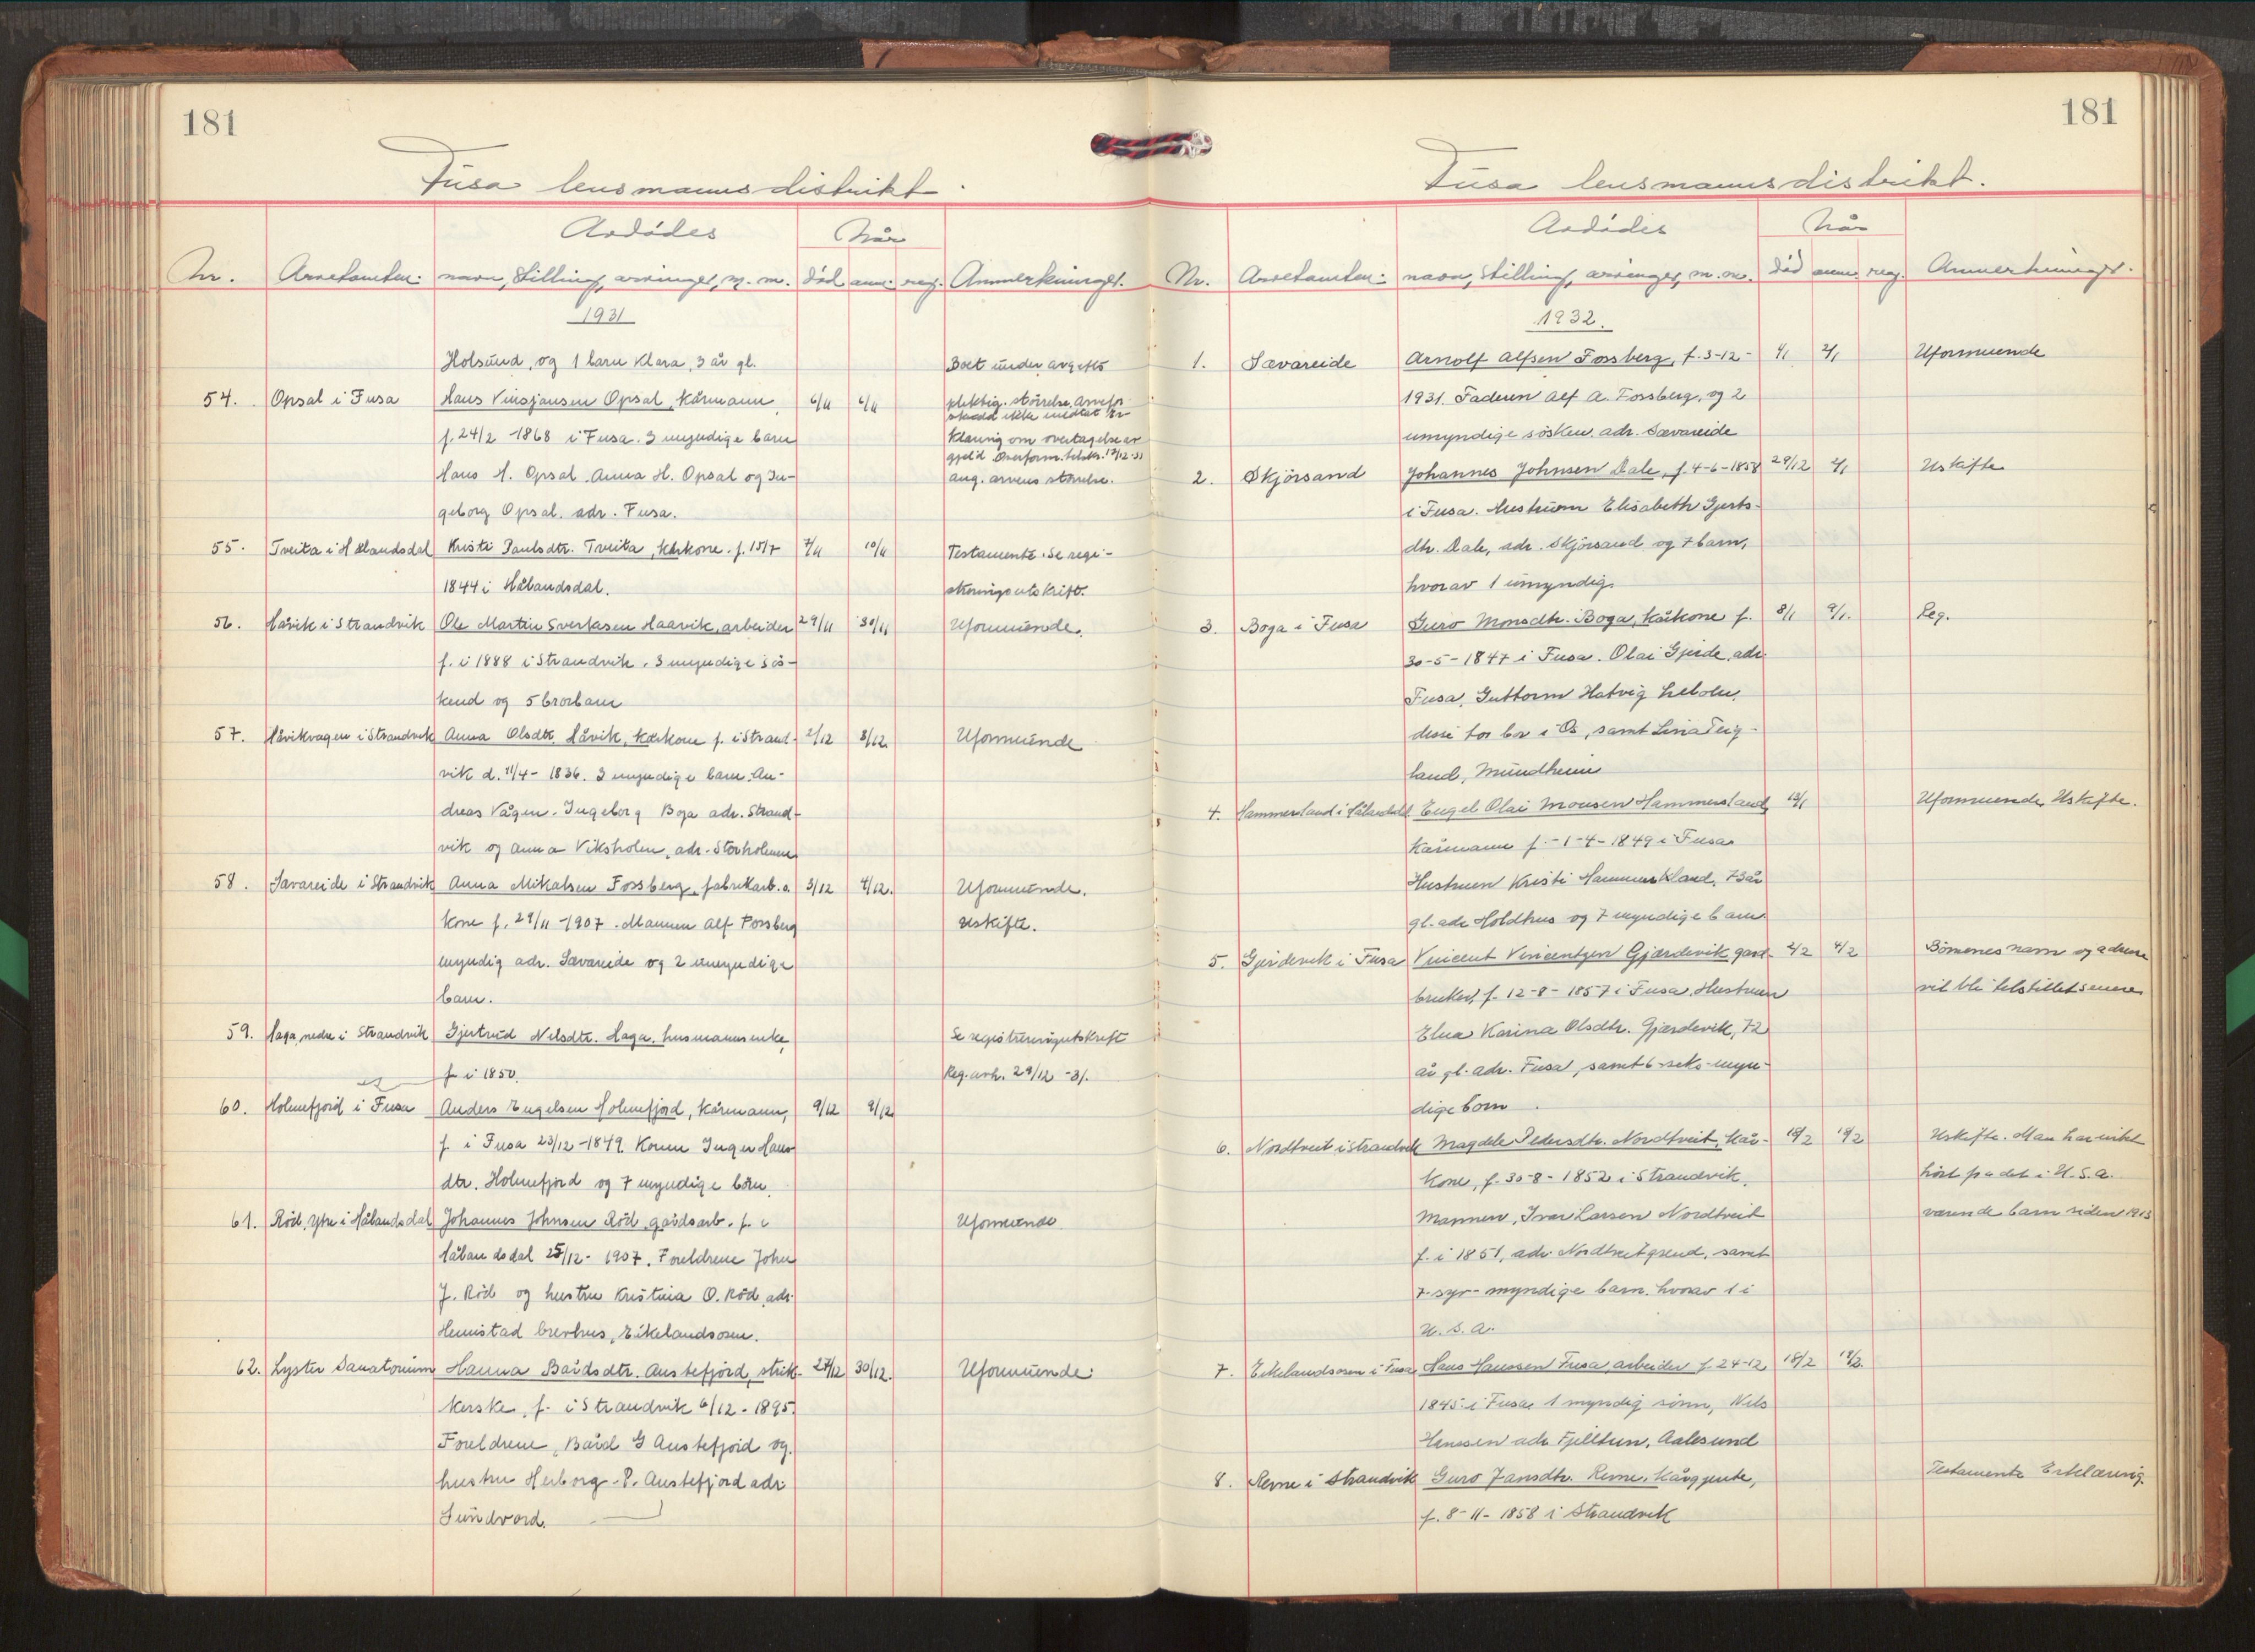 181
Fusa lensmannsdistrikt.
Avdødes
Når
Nr. Arvetomten: navn, stilling, arvinger, m. m. død anm. reg. Anmerkninger.
1931
Holsund, og 1 barn Klara, 3 år gl.
Boet under avgifts
54. Opsal i Fusa Hans Vinsjansen Opsal, Kårmann 6/11 6/11
pliktig. störrelse, arvefor
skudd ikke medtat Er-
f. 24/2 1868 i Fusa. 3 myndige barn
klæring om overtagelse av
gjeld Overform. tilskr. 12/12-31
Hans H. Opsal. Anna H. Opsal og In-
ang. arvens störrelse.
geborg Opsal. adr. Fusa.
55. Tveita i Hålandsdal Kristi Paulsdtr. Tveita, Kårkone. f. 15/7 7/11 10/11
Testamente. Se regi-
1844 i Hålandsdal.
streringsutskrift.
56. Håvik i Strandvik Ole Martin Sverkesen Haavik, arbeider 29/11 30/11 Uformuende.
f. i 1888 i Strandvik. 3 myndige sös-
kend og 5 brorbarn
57. Håvikvagen i Strandvik Anna Olsdtr. Håvik, Kårkone f. i Strand- 2/12 3/12. Uformuende
vik d. 11/4 - 1836. 3 myndige barn. An-
dreas Vågen. Ingeborg Boga adr. Strand-
vik og Anna Viksholm, adr. Storholmen
58. Sævareide i Strandvik Anna Mikalsen Fossberg, fabrikarb.a. 3/12 4/12. Uformuende.
kone f. 29/11 - 1907. Mannen Alf Fossberg Uskifte.
myndig adr. Sævareide og 2 umyndige
barn.
59. Haga, nedre i Strandvik Gjertrud Nilsdtr. Haga. husmannsenke, Se registreringsutskrift
f. i 1850. Reg. avh. 29/12 - 31.
60. Holmefjord i Fusa Anders Engelsen Holmefjord, Kårmann, 9/12 9/12
f. i Fusa 23/12 - 1849. Konen Inger Hans
dtr. Holmefjord og 7 myndige börn.
61. Röd, ytre i Hålandsdal Johannes Johnsen Röd, gårdsarb. f. i Uformuende
Hålandsdal 25/12 - 1907. Foreldrene John
J. Röd og hustru Kristina O. Röd, adr.
Henistad brevhus, Eikelandsosen.
62. Lyster Sanatorium Hanna Bårdsdtr. Austefjord, strik- 27/12 30/12. Uformuende.
kerske, f. i Strandvik 6/12 - 1895.
Foreldrene, Bård G Austefjord og
hustru Herborg P. Austefjord adr.
Sundvord.
181
Fusa lensmannsdistrikt.
Avdødes
Når
Nr. Arvetomten: navn, stilling, arvinger, m. m. død anm. reg. Anmerkninger.
1932.
1. Sævareide Arnolf Alfsen Fossberg, f. 3-12- 4/1 Uformuende
1931. Faderen Alf A. Fossberg, og 2
umyndige sösken. adr. Sævareide
2. Skjörsand Johannes Johnsen Dale, f. 4-6-1858 29/12 Uskifte
i Fusa. Hustruen Elisabeth Gjerts-
dtr. Dale, adr. Skjörsand og 7 barn,
hvorav 1 umyndig.
3. Boga i Fusa Guro Monsdtr. Boga, Kårkone f. 8/1 9/1. Reg.
30-5-1847 i Fusa. Olai Gjerde, adr.
Fusa, Guttorm Hatvig
disse tos bor i Os, samt Lina Teig-
land, Mundheim
4. Hammersland i Hålandsdal Engel Olai Monsen Hammersland, 13/1 Uformuende, Uskifte.
Kårmann f. - 1-4-1849 i Fusa
Hustruen Kristi Hammersland, 73 år
gl. adr. Holdhus og 7 myndige barn.
5. Gjerdevik i Fusa Vincent Vincentzen Gjærdevik gard- 2/2 4/2 Börnenes navn og adresse
bruker, f. 12-8-1857 i Fusa. Hustruen vil bli tilstillet senere
Elna Karina Olsdtr. Gjærdevik, 72
år gl. adr. Fusa, samt 6-seks-myn-
dige born.
6. Nordtveit i Strandvik Magdele Pedersdtr. Nordtveit, Kår- 18/2 19/2 Uskifte. Man har intet
kone, f. 30-8-1852 i Strandvik. hört fra det i U.S.A.
Mannen, Ivar Larsen Nordtveit værende barn siden 1913
f. i 1851, adr. Nordtveitgrend, samt
7-syv-myndige barn. hvorav 1 i
U.S.A.
7. Eikelandsosen i Fusa Hans Hanssen Fusa, arbeider f. 24-12 18/2 19/2.
1845 i Fusa 1 myndig sönn, Nils
Hanssen adr. Fjelltun, Aalesund
8. Revne i Strandvik Guro Jansdtr. Revne, Kårgjente, Testamente Erklæring.
f. 8-11-1858 i Strandvik